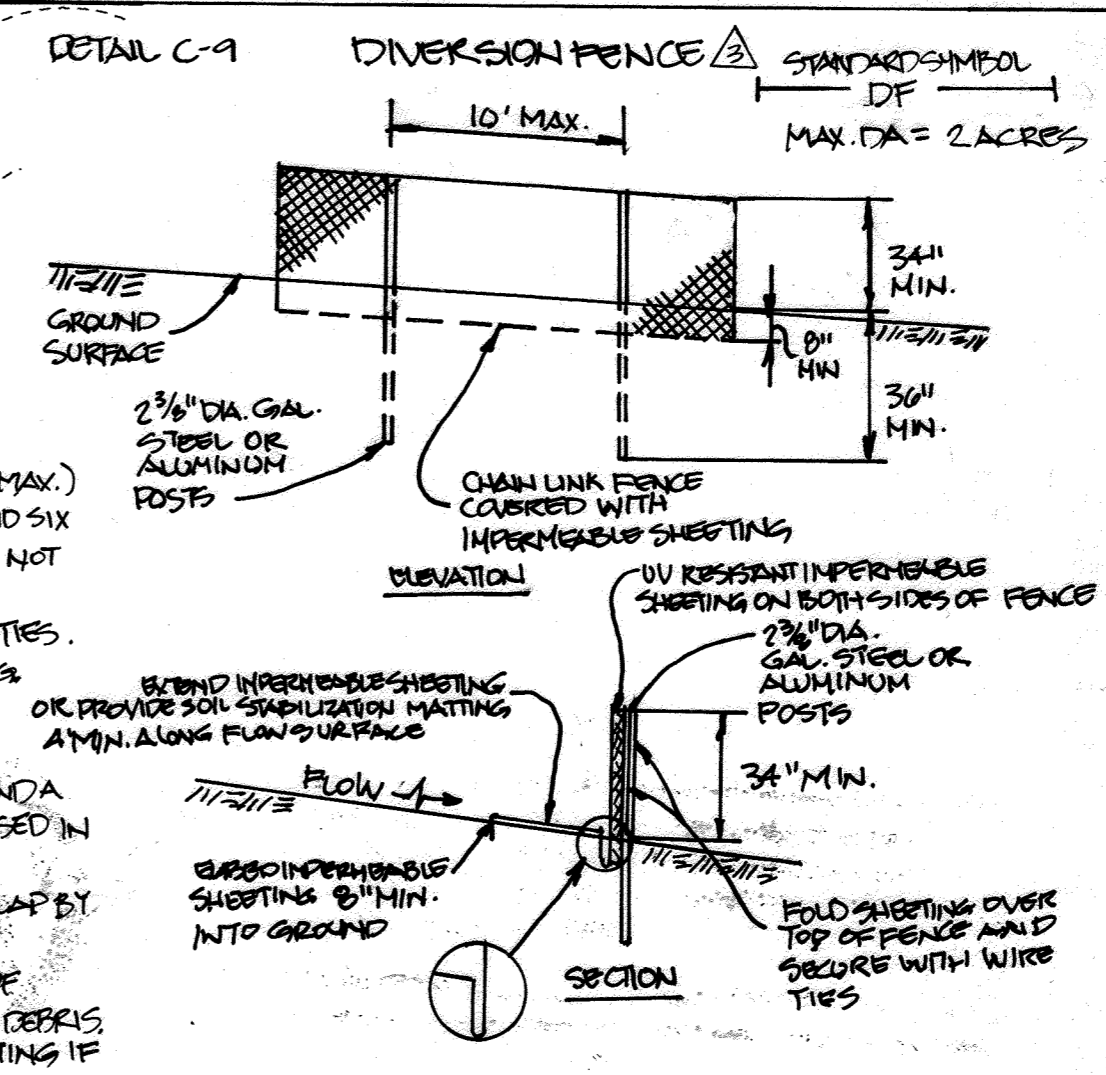 DETAIL C-9
DIVERSION FENCE 3
STANDARD SYMBOL
DF
MAX. DA = 2 ACRES
10' MAX.
34"
MIN.
8"
MIN
36"
MIN.
GROUND
SURFACE
2 3/8" DIA. GAL.
STEEL OR
ALUMINUM
POSTS
CHAIN LINK FENCE
COVERED WITH
IMPERMEABLE SHEETING
ELEVATION
MAX.)
ID SIX
NOT
TIES.
NDA
SED IN
LAP BY
F
DEBRIS.
TING IF
UV RESISTANT IMPERMEABLE
SHEETING ON BOTH SIDES OF FENCE
2 3/8" DIA.
GAL. STEEL OR
ALUMINUM
POSTS
EXTEND IMPERMEABLE SHEETING
OR PROVIDE SOIL STABILIZATION MATTING
4' MIN. ALONG FLOW SURFACE
FLOW
34" MIN.
EMBED IMPERMEABLE
SHEETING 8" MIN.
INTO GROUND
FOLD SHEETING OVER
TOP OF FENCE AND
SECURE WITH WIRE
TIES
SECTION